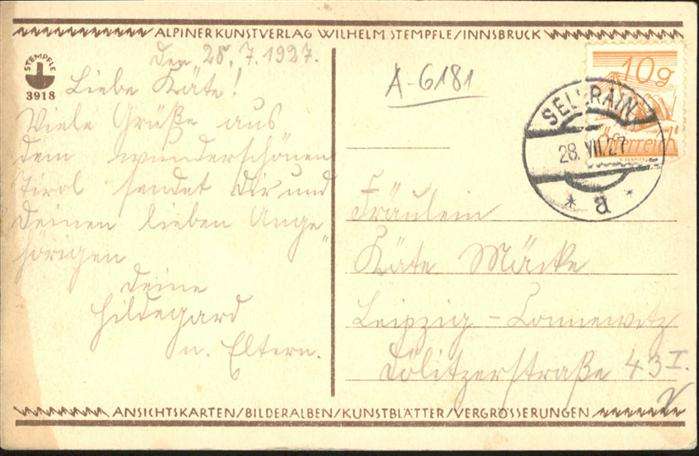 ALPINER KUNSTVERLAG WILHELM STEMPFLE/INNSBRUCK
STEMPFLE
3918
Den 28.7.1927.
Liebe Käte!
Viele Grüße aus
dem wunderschönen
Tirol sendet Dir und
Deinen lieben Ange-
hörigen
Deine
Hildegard
u. Eltern.
A-6181
10g
Österreich
SELLRAIN
28. VII. 27
* a *
Fräulein
Käte Mäcke
Leipzig-Connewitz
Dölitzerstraße 43 I.
ANSICHTSKARTEN/BILDERALBEN/KUNSTBLÄTTER/VERGRÖSSERUNGEN